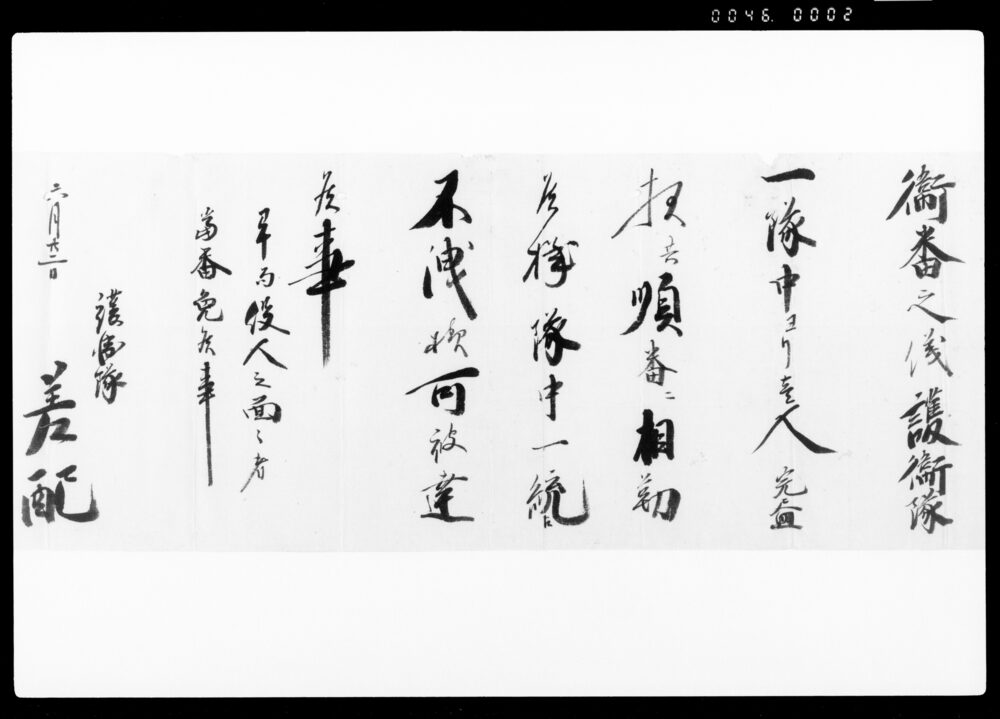 0046. 0002
衛番之儀護衛隊
一隊中ヨリ壱人完
順番ニ相勤
候様隊中一統
不洩様可被達
候事
早而役人之面々者
當番免候事
六月廿二日
護衛隊
差配